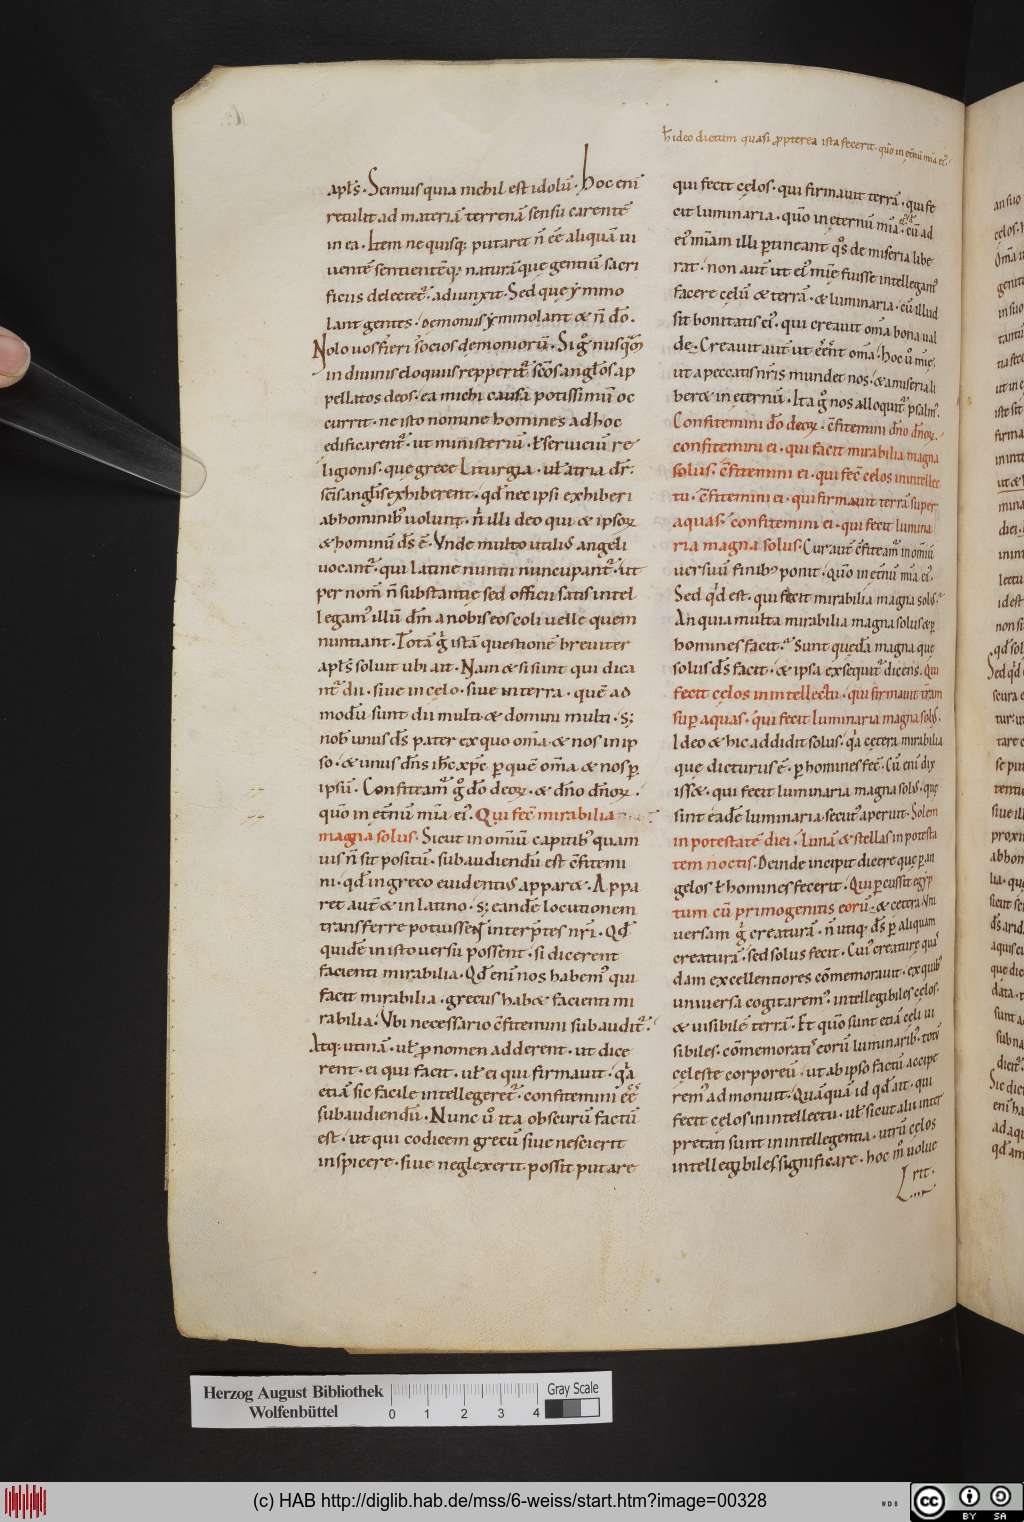 h ideo dictum quasi ꝓpterea ista fecerit · quō in etnū mīa ei᷒ ·
apłs · Scimus quia nichil est idolū · hoc enī
retulit ad materiā terrenā sensu carentē
in ea · Item ne quisq; putaret ñ eē aliquā ui
uentē sentientēq; naturā que gentiū sacri
ficiis delectet᷒ · adiunxit · Sed que ymmo
lant gentes · demoniis ymmolant & ñ dō ·
Nolo uos fieri socios demoniorū · Sig̊ nusquā
in diuinis eloquiis repperit᷒ scōs anglos ap
pellatos deos · ea michi causa potissimū oc
currit · ne isto nomine homines ad hoc
edificarent᷒ · ut ministeriū · ł seruiciū re
ligionis · que grece Liturgia · uł latria dr̄ ·
scīs anglis exhiberent · qđ nec ipsi exhiberi
ab hominib᷒ uolunt · ñ illi deo qui & ipsoꝝ
& hominū dš ē · Vnde multo utili᷒ angeli
uocant᷒ · qui latine nuntii nuncupant᷒ · ut
per nom̄ ñ substantie sed officii satis intel
legam᷒ illū dm̄ a nobis eos coli uelle quem
nuntiant · Totā g̊ istā questionē breuiter
apłs soluit ubi ait · Nam & si sunt qui dica
nt᷒ dii · siue in celo · siue in terra · quē ad
modū sunt dii multi & domini multi · S;
nob̄ unus dš pater ex quo om̄a · & nos in ip
so · & unus dn̄s ihc̄ xpc̄ · ꝑ quē om̄a & nos ꝑ
ipsū · Confiteam᷒ g̊ dō deoꝝ · & dn̄o dn̄oꝝ ·
quō in etnū mīa ei᷒ · Qui fec̄ mirabilia
magna solus · Sicut in om̄iū capitib᷒ quam
uis ñ sit positū · subaudiendū est cf̄itemi
ni · qđ in greco euidenti᷒ apparet · Appa
ret aut̄ & in latino · s; eandē locutionem
transferre potuissent interp̄tes nr̄i · Qđ
quidē in isto uersu possent · si dicerent
facienti mirabilia · Qđ enī nos habem᷒ qui
facit mirabilia · grecus habet facienti mi
rabilia · Vbi necessario cf̄itemini subaudit᷒ ·
Atq; utinā · uł ꝓnomen adderent · ut dice
rent · ei qui facit · uł ei qui firmauit · qa
etiā sic facile intellegeret᷒ · confitemini eē
subaudiendū · Nunc u̇ ita obscurū factū
est · ut qui codicem grecū siue nescierit
inspicere · siue neglexerit possit putare
qui fecit celos · qui firmauit terrā · qui fe
cit luminaria · quō in eternū mīa ei᷒ · eū ad
ei᷒ mīam illi ꝑtineant qs̊ de miseria libe
rat · non aut̄ ut ei᷒ mīe fuisse intellegam᷒
facere celū & terrā · & luminaria · eū illud
sit bonitatis ei᷒ · qui creauit om̄a bona ual
de · Creauit aut̄ ut eēnt om̄a · hoc u̇ mīe ·
ut a peccatis nr̄is mundet nos · & a miseria li
beret in eternū · Ita g̊ nos alloquit᷒ psalm᷒ ·
Confitemini dō deoꝝ · cf̄itemini dn̄o dn̄oꝝ ·
confitemini ei · qui facit mirabilia magna
solus · cf̄itemini ei · qui fec̄ celos in intellec
tu · cf̄itemini ei · qui firmauit terrā super
aquas · confitemini ei · qui fecit lumina
ria magna solus · Cur aut̄ cf̄iteam᷒ in om̄iū
uersuū finib᷒ ponit · quō in etnū mīa ei᷒ ·
Sed qd est · qui fecit mirabilia magna solus ·
An quia multa mirabilia magna solus & ꝑ
homines facit · Sunt quedā magna que
solus dš facit · & ipsa exsequit᷒ dicens · Qui
fecit celos in intellectu · qui firmauit t̄ram
sup̄ aquas · qui fecit luminaria magna solus ·
Ideo & hic addidit solus · qa cetera mirabilia
que dicturus ē · ꝑ homines fec̄ · Cū enī dix
isset · qui fecit luminaria magna solus · que
sint eadē luminaria secut᷒ aperuit · Solem
in potestatē diei · lunā & stellas in potesta
tem noctis · Deinde incipit dicere que ꝑ an
gelos ł homines fecerit · Qui ꝑcussit egyp
tum cū primogenitis eorū · & cetera · Vni
uersam g̊ creaturā · ñ utiq; dš ꝑ aliquam
creaturā · sed solus fecit · Cui᷒ creature quas
dam excellentiores cōmemorauit · ex quib᷒
uniuersa cogitarem᷒ · intellegibiles celos ·
& uisibilē terrā · Et quō sunt etiā celi ui
sibiles · cōmemorati᷒ eorū luminarib᷒ · totū
celeste corporeū · ut ab ipso factū accipe
rem᷒ admonuit · Quāquā id qđ ait · qui
fecit celos in intellectu · uł sicut alii inter
pretati sunt in intellegentia · utrū celos
intellegibiles significare · hoc m̊ uolue
rit ·
Herzog August Bibliothek
Wolfenbüttel
0 1 2 3 4
Gray Scale
(c) HAB http://diglib.hab.de/mss/6-weiss/start.htm?image=00328
cc BY SA